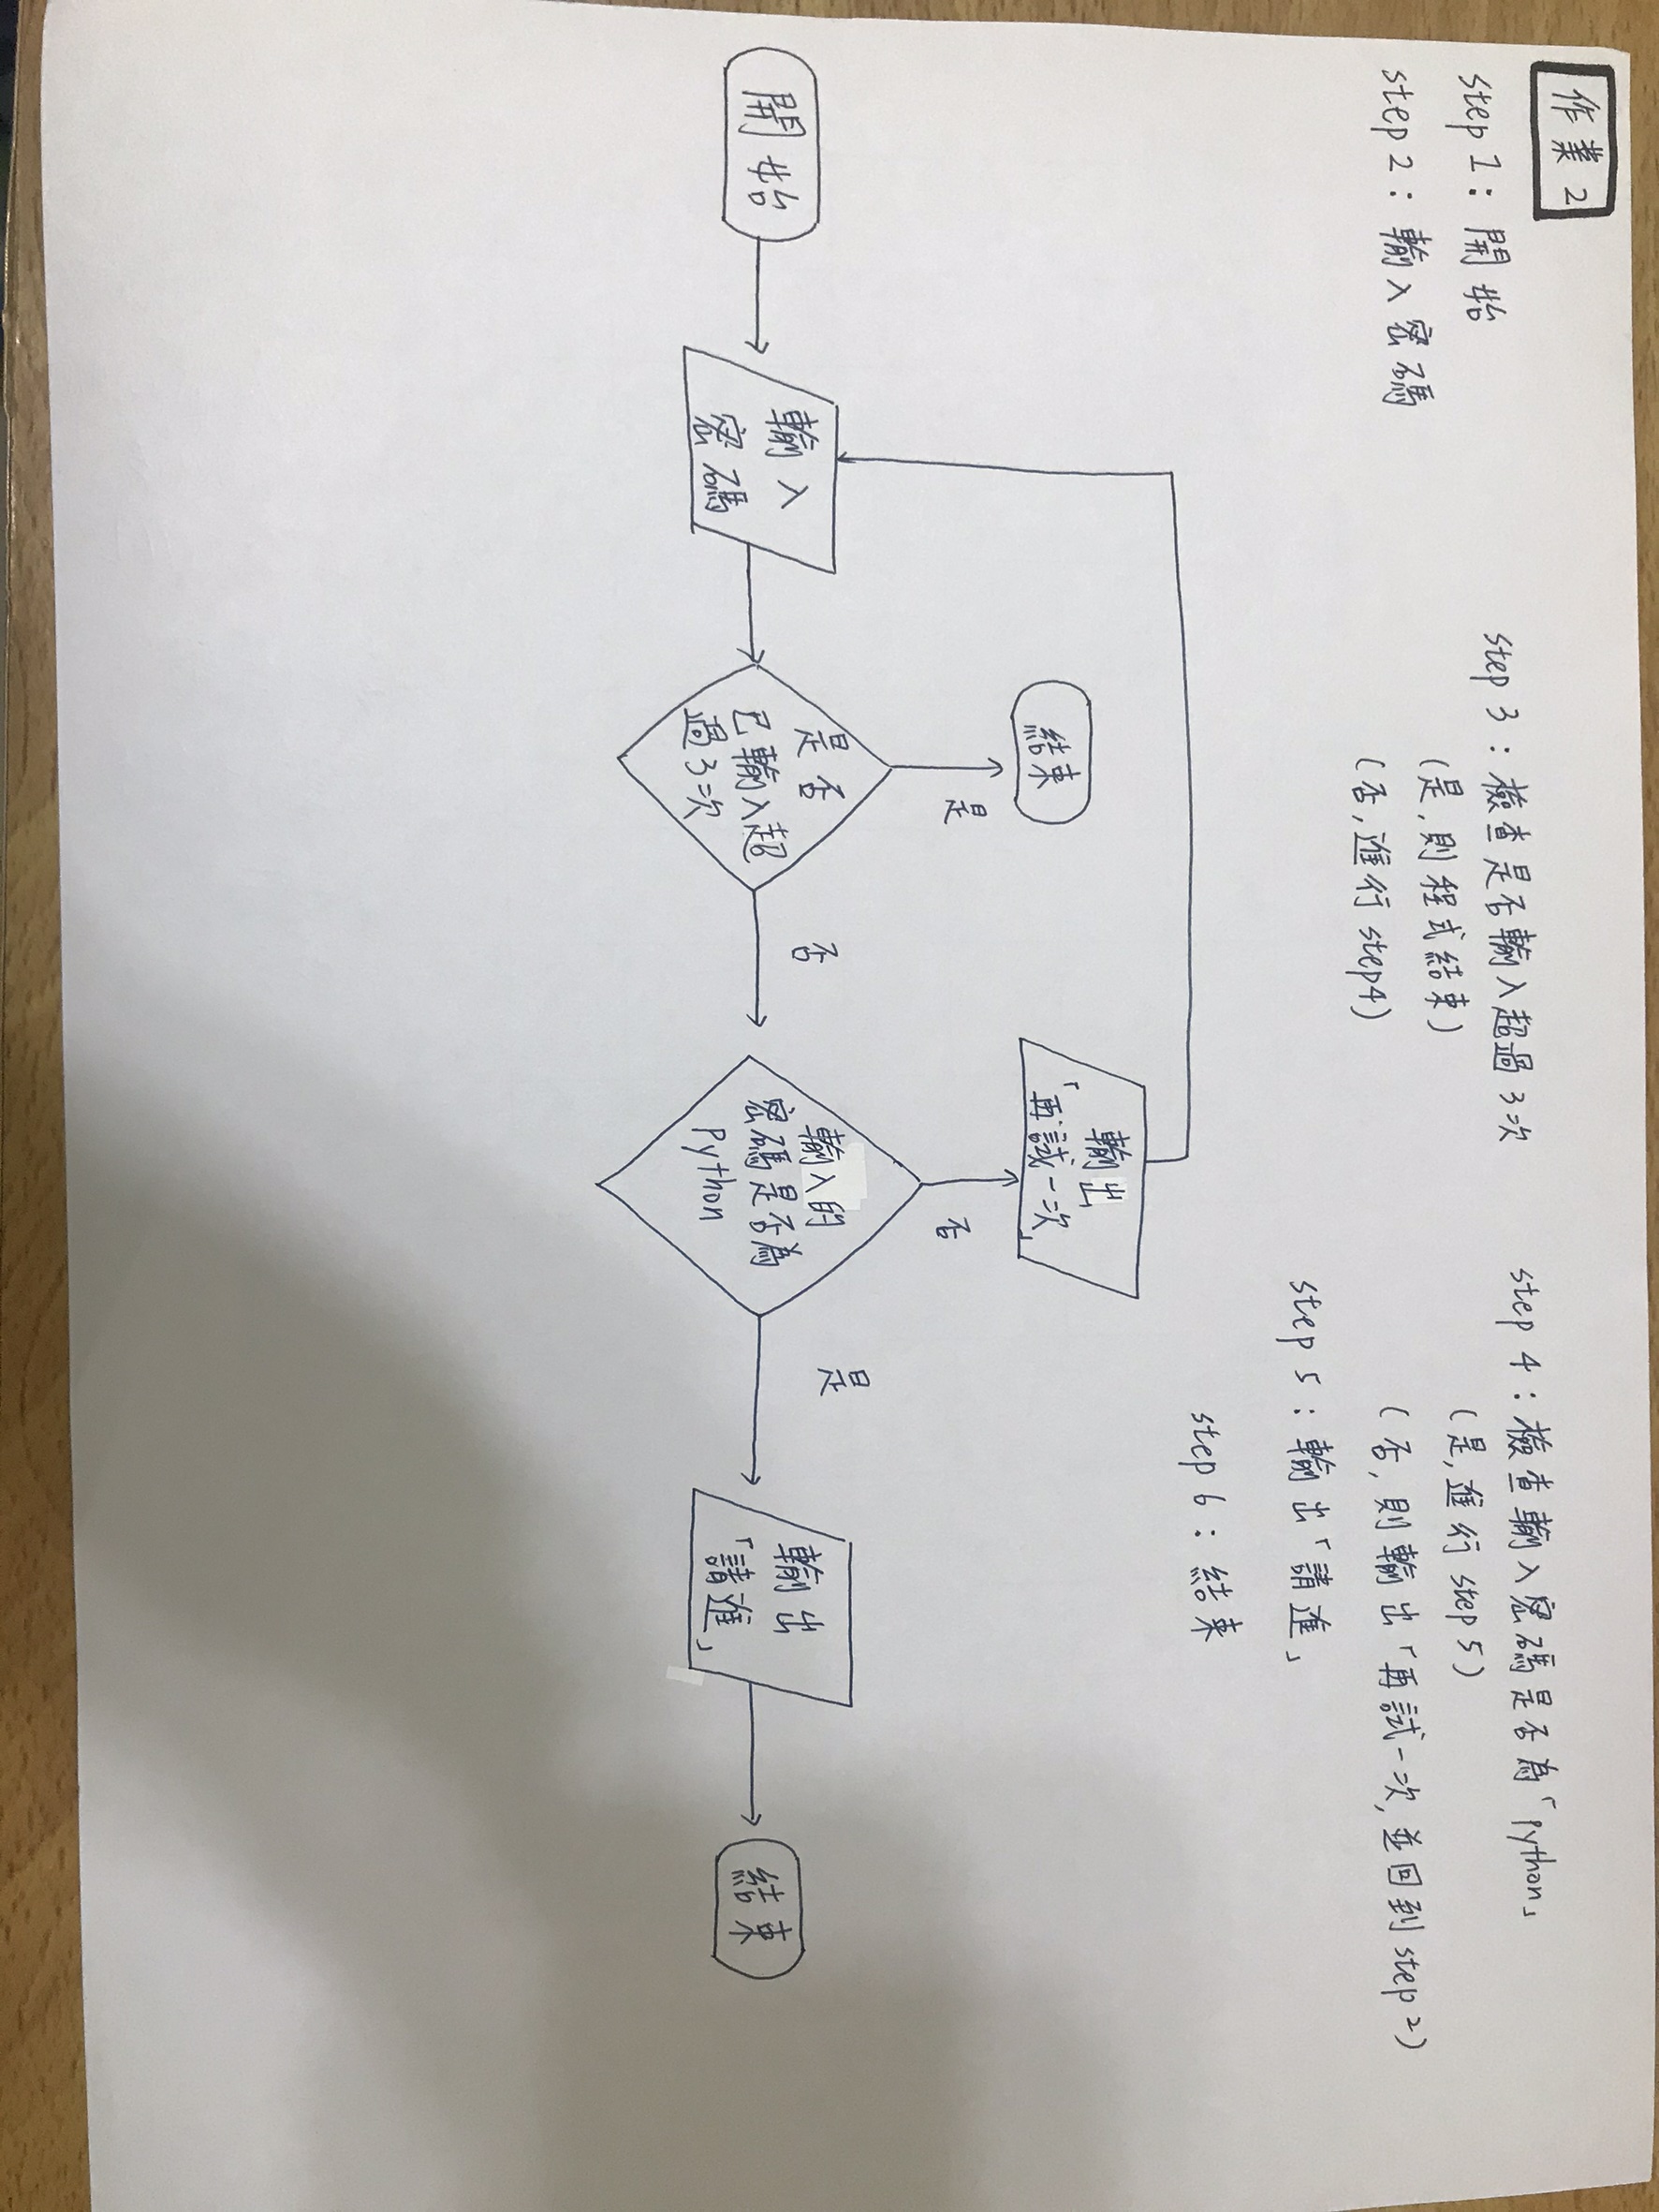 作業2
step 1：開始
step 2：輸入密碼
step 3：檢查是否輸入超過3次
(是,則程式結束)
(否,進行step4)
step 4：檢查輸入密碼是否為「Python」
(是,進行step5)
(否,則輸出「再試一次,並回到step2)
step 5：輸出「請進」
step 6：結束
開始
輸入
密碼
是否
已輸入超
過3次
是
結束
否
輸入的
密碼是否為
Python
否
輸出
「再試一次」
是
輸出
「請進」
結束